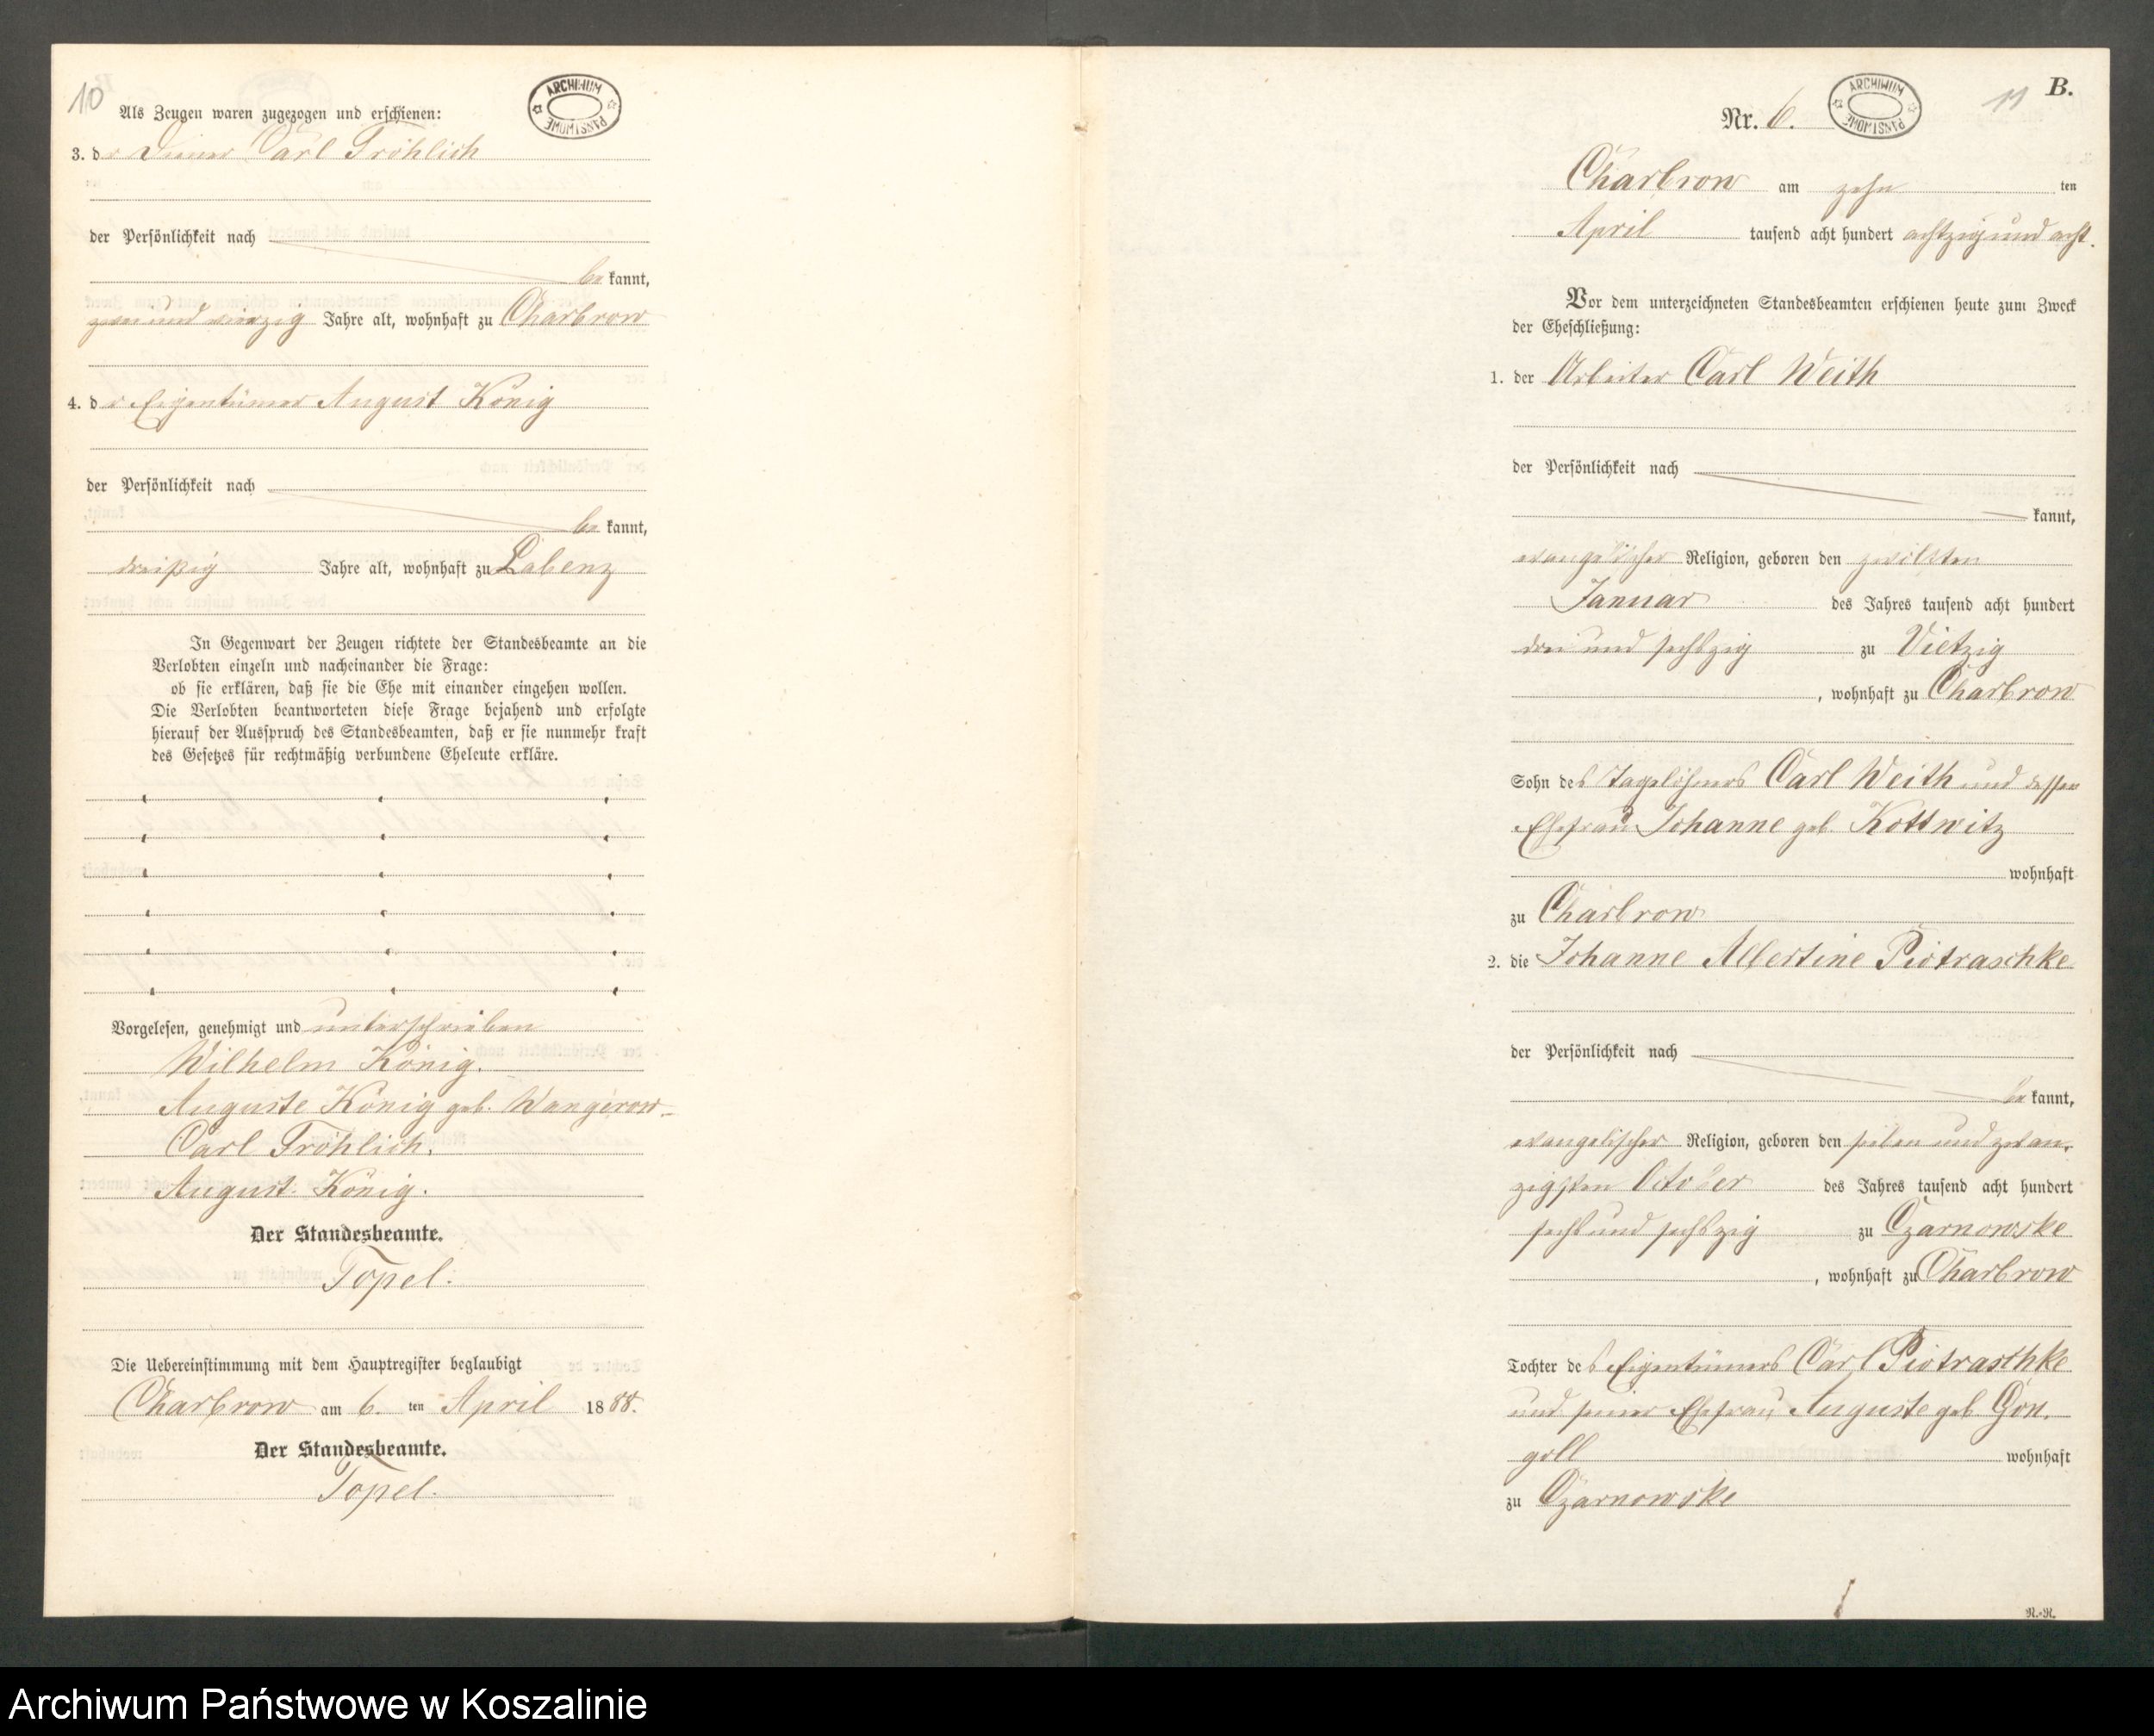 10
ARCHIWUM PAŃSTWOWE
Als Zeugen waren zugezogen und erschienen:
3. der Diener Carl Fröhlich
der Persönlichkeit nach
bekannt,
zwei und vierzig Jahre alt, wohnhaft zu Charbrow
4. der Eigentümer August König
der Persönlichkeit nach
bekannt,
dreißig Jahre alt, wohnhaft zu Labenz
In Gegenwart der Zeugen richtete der Standesbeamte an die
Verlobten einzeln und nacheinander die Frage:
ob sie erklären, daß sie die Ehe mit einander eingehen wollen.
Die Verlobten beantworteten diese Frage bejahend und erfolgte
hierauf der Ausspruch des Standesbeamten, daß er sie nunmehr kraft
des Gesetzes für rechtmäßig verbundene Eheleute erkläre.
Vorgelesen, genehmigt und unterschrieben
Wilhelm König.
Auguste König geb. Wangerow.
Carl Fröhlich.
August König.
Der Standesbeamte.
Topel.
Die Uebereinstimmung mit dem Hauptregister beglaubigt
Charbrow am 6. ten April 1888.
Der Standesbeamte.
Topel.
11
B.
ARCHIWUM PAŃSTWOWE
Nr. 6.
Charbrow am zehn ten
April tausend acht hundert achtzig und acht.
Vor dem unterzeichneten Standesbeamten erschienen heute zum Zweck
der Eheschließung:
1. der Arbeiter Carl Weith
der Persönlichkeit nach
kannt,
evangelischer Religion, geboren den zwölften
Januar des Jahres tausend acht hundert
drei und sechszig zu Vietzig
, wohnhaft zu Charbrow
Sohn des Tagelöhners Carl Weith und dessen
Ehefrau Johanne geb. Kottwitz
wohnhaft
zu Charbrow
2. die Johanne Albertine Piotraschke
der Persönlichkeit nach
bekannt,
evangelischer Religion, geboren den sieben und zwan-
zigsten October des Jahres tausend acht hundert
sechs und sechszig zu Czarnowske
, wohnhaft zu Charbrow
Tochter des Eigentümers Carl Piotraschke
und seiner Ehefrau Auguste geb Gon-
goll wohnhaft
zu Czarnowske
R.-R.
Archiwum Państwowe w Koszalinie